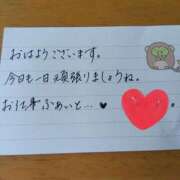 おはようございます。
今日も一日頑張りましょうね。
お仕事ふぁいと…♥